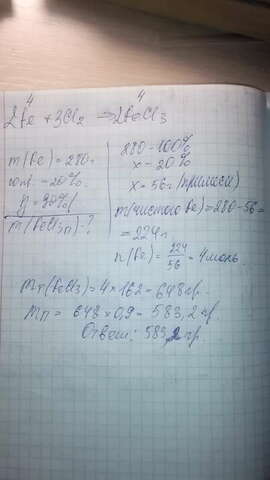 4 4
2Fe + 3Cl₂ ⇒ 2FeCl₃
m(Fe) = 280г
- 20%
y = 90%
m(FeCl₃п) - ?
280 - 100%
x - 20%
x = 56г (примеси)
m(чистого Fe) = 280-56 =
= 224г
n(Fe) = 224/56 = 4 моль
mт(FeCl₃) = 4 × 162 = 648 гр.
mп = 648 × 0,9 = 583,2 гр
Ответ: 583,2 гр.